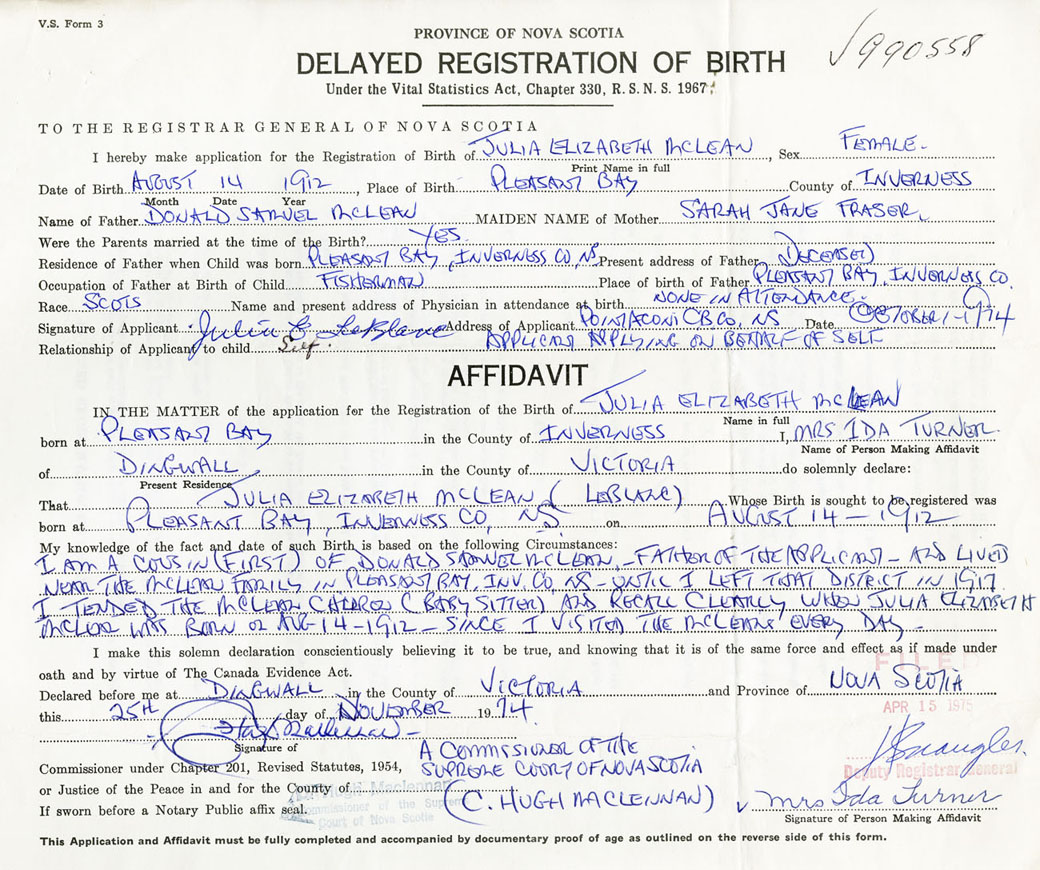 V.S. Form 3
PROVINCE OF NOVA SCOTIA
990558
DELAYED REGISTRATION OF BIRTH
Under the Vital Statistics Act, Chapter 330, R.S.N.S. 1967
TO THE REGISTRAR GENERAL OF NOVA SCOTIA
I hereby make application for the Registration of Birth of JULIA ELIZABETH MCLEAN, Sex FEMALE
Print Name in full
Date of Birth AUGUST 14 1912, Place of Birth PLEASANT BAY County of INVERNESS
Month Date Year
Name of Father DONALD SAMUEL MCLEAN MAIDEN NAME of Mother SARAH JANE FRASER
Were the Parents married at the time of the Birth? YES
Residence of Father when Child was born PLEASANT BAY, INVERNESS CO, NS Present address of Father DECEASED
Occupation of Father at Birth of Child FISHERMAN Place of birth of Father PLEASANT BAY, INVERNESS CO.
Race SCOTS Name and present address of Physician in attendance at birth NONE IN ATTENDANCE
Signature of Applicant Julia E LeBlanc Address of Applicant POINT ACONI CB CO, NS Date OCTOBER 1-1974
Relationship of Applicant to child Self. APPLICANT APPLYING ON BEHALF OF SELF
AFFIDAVIT
IN THE MATTER of the application for the Registration of the Birth of JULIA ELIZABETH MCLEAN
Name in full
born at PLEASANT BAY in the County of INVERNESS I, MRS IDA TURNER
Name of Person Making Affidavit
of DINGWALL in the County of VICTORIA do solemnly declare:
Present Residence
That JULIA ELIZABETH MCLEAN (LEBLANC) Whose Birth is sought to be registered was
born at PLEASANT BAY, INVERNESS CO, NS on AUGUST 14-1912
My knowledge of the fact and date of such Birth is based on the following Circumstances:
I AM A COUSIN (FIRST) OF DONALD SAMUEL MCLEAN - FATHER OF THE APPLICANT - AND LIVED
NEAR THE MCLEAN FAMILY IN PLEASANT BAY, INV. CO, NS - UNTIL I LEFT THAT DISTRICT IN 1917
I TENDED THE MCLEAN CHILDREN (BABY SITTER) AND RECALL CLEARLY WHEN JULIA ELIZABETH
MCLEAN WAS BORN ON AUG-14-1912 - SINCE I VISITED THE MCLEANS EVERY DAY -
I make this solemn declaration conscientiously believing it to be true, and knowing that it is of the same force and effect as if made under
oath and by virtue of The Canada Evidence Act.
FILED
Declared before me at DINGWALL in the County of VICTORIA and Province of NOVA SCOTIA
APR 15 1975
this 25TH day of NOVEMBER 1974.
Signature of
Commissioner under Chapter 201, Revised Statutes, 1954,
A COMMISSIONER OF THE
SUPREME COURT OF NOVA SCOTIA
Deputy Registrar General
or Justice of the Peace in and for the County of
C. Hugh Maclennan
(C. HUGH MACLENNAN)
If sworn before a Notary Public affix seal.
Commissioner of the Supreme
Court of Nova Scotia
Mrs Ida Turner
Signature of Person Making Affidavit
This Application and Affidavit must be fully completed and accompanied by documentary proof of age as outlined on the reverse side of this form.